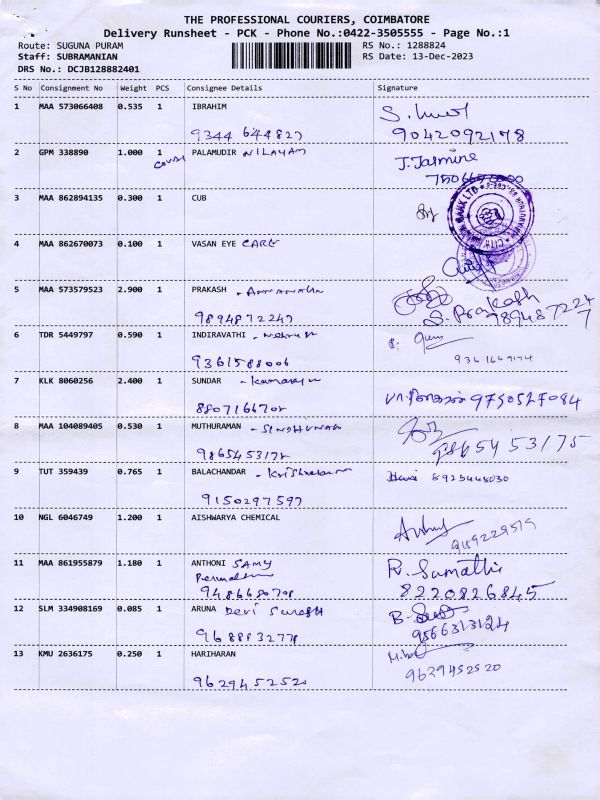 THE PROFESSIONAL COURIERS, COIMBATORE
Delivery Runsheet - PCK - Phone No.:0422-3505555 - Page No.:1
Route: SUGUNA PURAM RS No.: 1288824
Staff: SUBRAMANIAN RS Date: 13-Dec-2023
DRS No.: DCJB128882401
S No Consignment No Weight PCS Consignee Details Signature
1 MAA 573066408 0.535 1 IBRAHIM
9344 644827 9042092178
2 GPM 338890 1.000 1 PALAMUDIR NILAYAM J.Jasmine
3 MAA 862894135 0.300 1 CUB
4 MAA 862670073 0.100 1 VASAN EYE CARE
5 MAA 573579523 2.900 1 PRAKASH
9894872247 S. Prakash 9894872247
6 TDR 5449797 0.590 1 INDIRAVATHI
9361588006 9361669174
7 KLK 8060256 2.400 1 SUNDAR - Kamarajar
8807166708 9750527084
8 MAA 104089405 0.530 1 MUTHURAMAN - SINDHUNAG
9865453175 9865453175
9 TUT 359439 0.765 1 BALACHANDAR
9150297597
10 NGL 6046749 1.200 1 AISHWARYA CHEMICAL
11 MAA 861955879 1.180 1 ANTHONI SAMY R. Sumathi
9486680708 8220826845
12 SLM 334908169 0.085 1 ARUNA Devi Suresh
9566313124
13 KMU 2636175 0.250 1 HARIHARAN
9629452520 9629452520